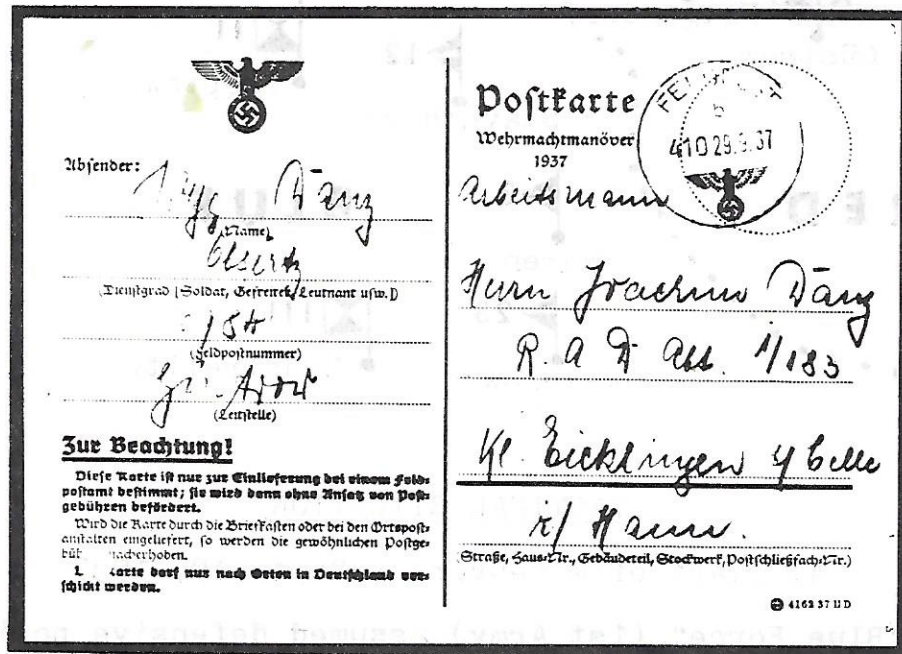 Absender:
Danz
(Name)
(Dienstgrad [Soldat, Gefreiter, Leutnant usw.])
(Feldpostnummer)
(Leitstelle)
Zur Beachtung!
Diese Karte ist nur zur Einlieferung bei einem Feld-
postamt bestimmt; sie wird dann ohne Ansatz von Post-
gebühren befördert.
Wird die Karte durch die Briefkasten oder bei den Ortspost-
anstalten eingeliefert, so werden die gewöhnlichen Postge-
nacherhoben.
Karte darf nur nach Orten in Deutschland ver-
schickt werden.
Postkarte
Wehrmachtmanöver
1937
b
410 29.9.37
Arbeitsmann
Herrn Joachim Dänz
R. A D Abt. 1/183
Kl. Eicklingen b/Celle
i/ Hann.
(Straße, Haus-Nr., Gebäudeteil, Stockwerk, Postschließfach-Nr.)
4162 37 II D
12
Blue Force" (1st Army) assumed defensive po